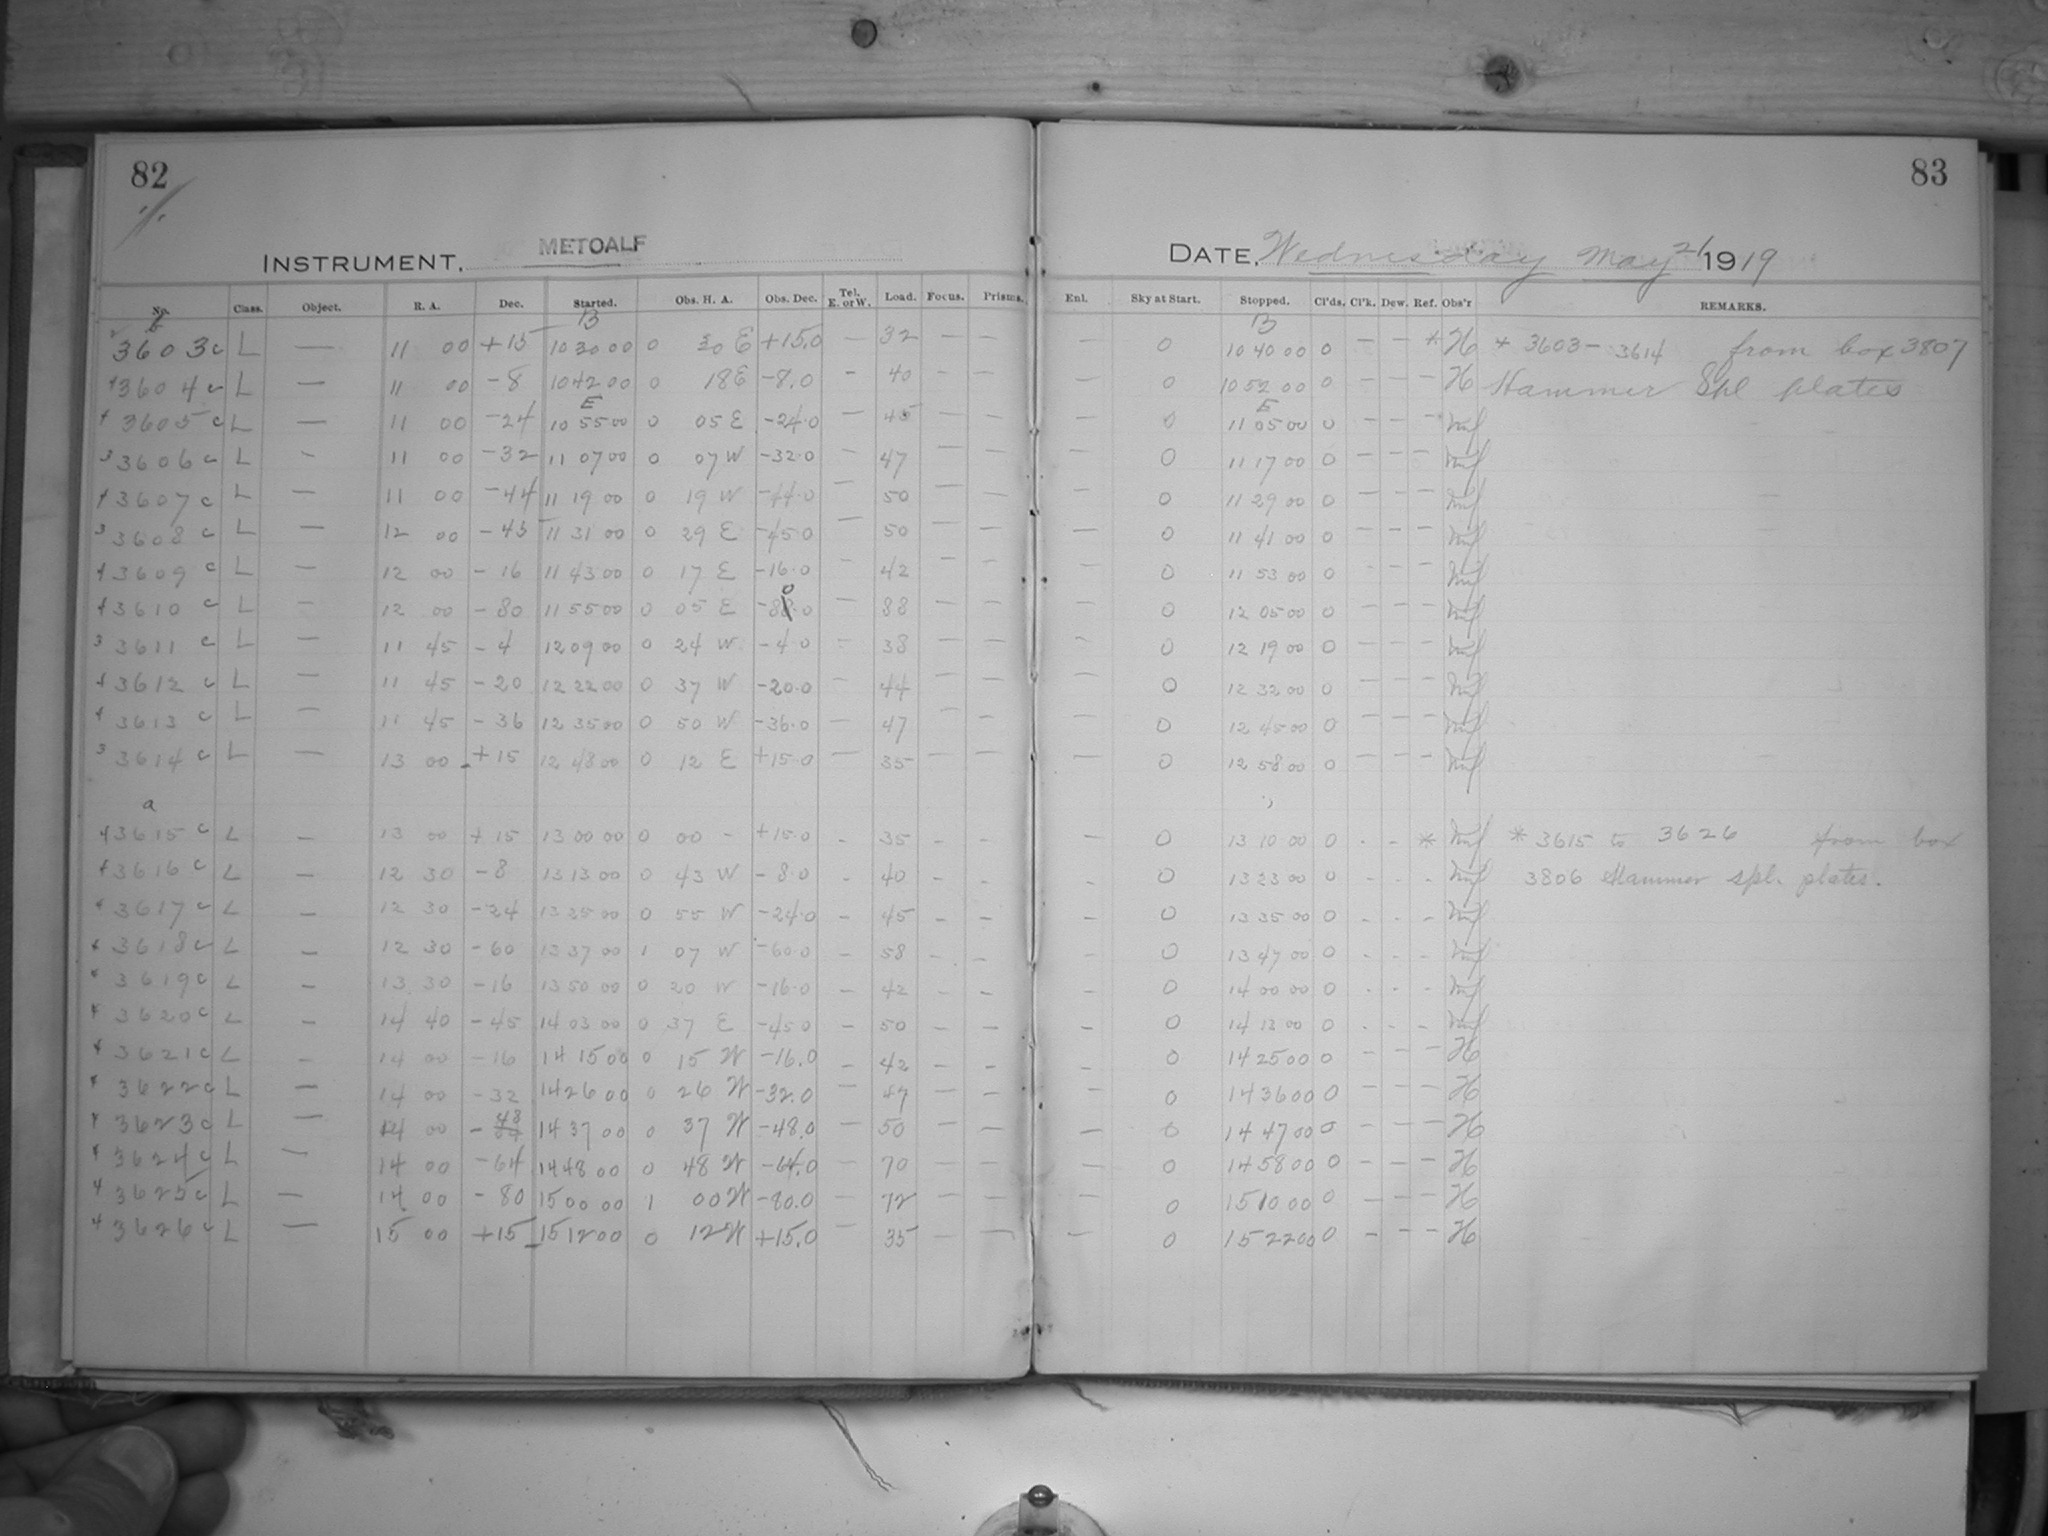 82 83
INSTRUMENT, METCALF DATE, Wednesday May 21 1919
No. Class. Object. R. A. Dec. Started. Obs. H. A. Obs. Dec. Tel. E. or W. Load. Focus. Prisms. Enl. Sky at Start. Stopped. Cl'ds. Cl'k. Dew. Ref. Obs'r REMARKS.
B B
3603 c L — 11 00 +15 10 30 00 0 30 E +15.0 — 32 — — — 0 10 40 00 0 — — * H * 3603 - 3614 from box 3807
3604 c L — 11 00 -8 10 42 00 0 18 E -8.0 - 40 — — — 0 10 52 00 0 — — — H Hammer Spl plates
E E
3605 c L — 11 00 -24 10 55 00 0 05 E -24.0 — 45 — — — 0 11 05 00 0 — — —
3606 c L - 11 00 -32 11 07 00 0 07 W -32.0 — 47 — — — 0 11 17 00 0 — — —
3607 c L — 11 00 -44 11 19 00 0 19 W -44.0 — 50 — — — 0 11 29 00 0 — — —
3608 c L — 12 00 -45 11 31 00 0 29 E -45.0 — 50 — — — 0 11 41 00 0 — — —
3609 c L — 12 00 -16 11 43 00 0 17 E -16.0 — 42 — — — 0 11 53 00 0 — — —
3610 c L — 12 00 -80 11 55 00 0 05 E -80.0 — 88 — — — 0 12 05 00 0 — — —
3611 c L — 11 45 -4 12 09 00 0 24 W -4.0 - 38 — — - 0 12 19 00 0 — — —
3612 c L — 11 45 -20 12 22 00 0 37 W -20.0 — 44 — — — 0 12 32 00 0 — — —
3613 c L — 11 45 -36 12 35 00 0 50 W -36.0 — 47 — — — 0 12 45 00 0 — — —
3614 c L — 13 00 +15 12 48 00 0 12 E +15.0 — 35 — — — 0 12 58 00 0 — — —
a
3615 c L — 13 00 +15 13 00 00 0 00 - +15.0 - 35 - - - 0 13 10 00 0 - - * * 3615 to 3626 from box
3616 c L — 12 30 -8 13 13 00 0 43 W -8.0 - 40 - - - 0 13 23 00 0 - - - 3806 Hammer spl. plates.
3617 c L — 12 30 -24 13 25 00 0 55 W -24.0 - 45 - - - 0 13 35 00 0 - - -
3618 c L — 12 30 -60 13 37 00 1 07 W -60.0 - 58 - - - 0 13 47 00 0 - - -
3619 c L — 13 30 -16 13 50 00 0 20 W -16.0 - 42 - - - 0 14 00 00 0 - - -
3620 c L — 14 40 -45 14 03 00 0 37 E -45.0 - 50 - - - 0 14 13 00 0 - - -
3621 c L - 14 00 -16 14 15 00 0 15 W -16.0 - 42 - - - 0 14 25 00 0 — — — H
3622 c L — 14 00 -32 14 26 00 0 26 W -32.0 — 47 — — — 0 14 36 00 0 — — — H
3623 c L — 14 00 -48 14 37 00 0 37 W -48.0 — 50 — — — 0 14 47 00 0 — — — H
3624 c L — 14 00 -64 14 48 00 0 48 W -64.0 — 70 — — — 0 14 58 00 0 — — — H
3625 c L — 14 00 -80 15 00 00 1 00 W -80.0 — 72 — — — 0 15 10 00 0 — — — H
3626 c L — 15 00 +15 15 12 00 0 12 W +15.0 — 35 — — — 0 15 22 00 0 — — — H